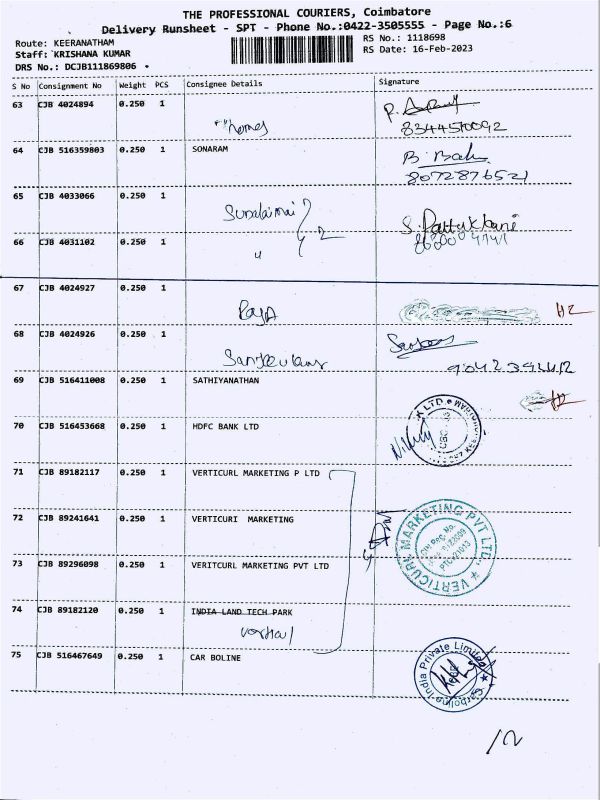 THE PROFESSIONAL COURIERS, Coimbatore
Delivery Runsheet - SPT - Phone No.:0422-3505555 - Page No.:6
Route: KEERANATHAM
Staff: KRISHANA KUMAR
DRS No.: DCJB111869806
RS No.: 1118698
RS Date: 16-Feb-2023
S No Consignment No Weight PCS Consignee Details Signature
63 CJB 4024894 0.250 1
homes
8344570092
64 CJB 516359803 0.250 1 SONARAM
8072876521
65 CJB 4033066 0.250 1
66 CJB 4031102 0.250 1
67 CJB 4024927 0.250 1
Raja
68 CJB 4024926 0.250 1
69 CJB 516411008 0.250 1 SATHIYANATHAN
70 CJB 516453668 0.250 1 HDFC BANK LTD
71 CJB 89182117 0.250 1 VERTICURL MARKETING P LTD
72 CJB 89241641 0.250 1 VERTICURI MARKETING
73 CJB 89296098 0.250 1 VERITCURL MARKETING PVT LTD
VERTICURL MARKETING PVT LTD.
74 CJB 89182120 0.250 1 INDIA LAND TECH PARK
75 CJB 516467649 0.250 1 CAR BOLINE
Carboline India Private Limited
12